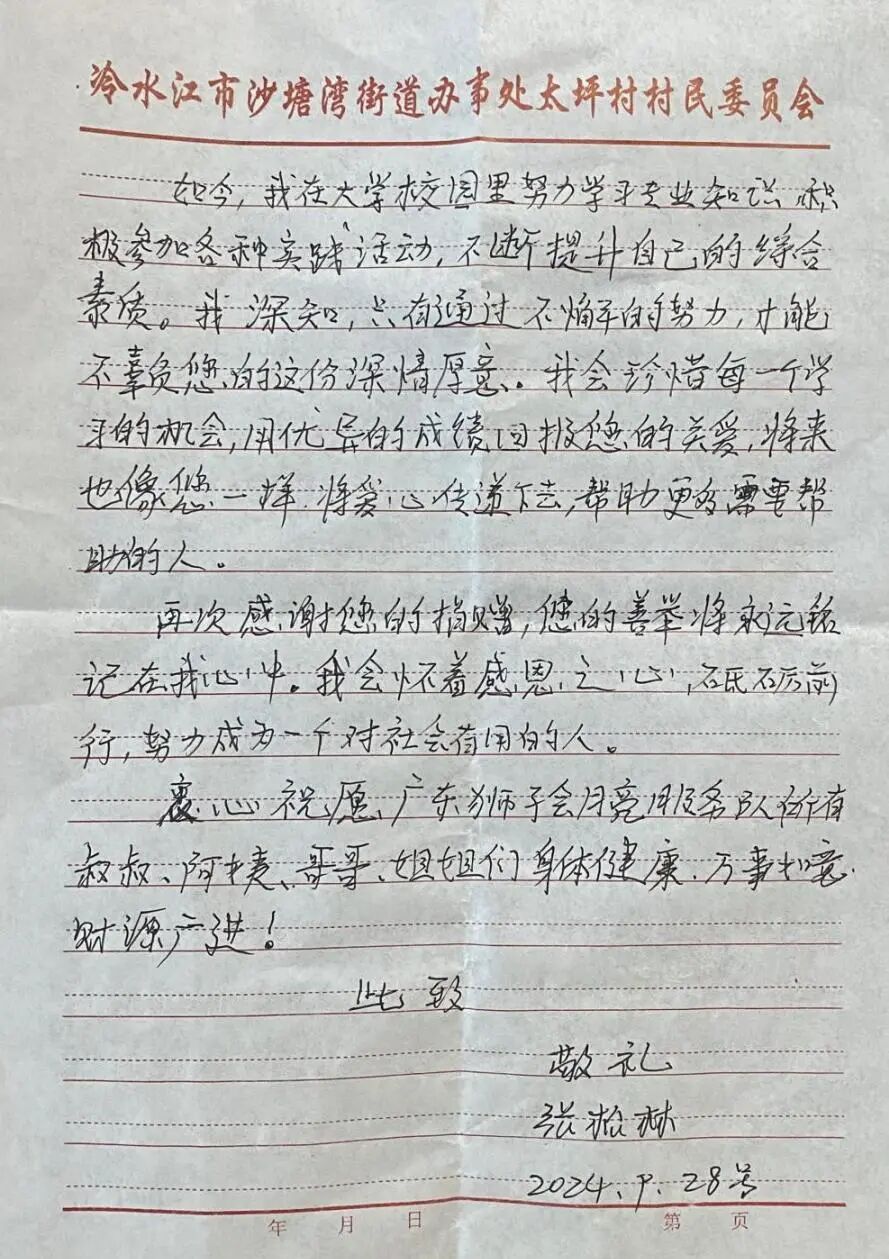 冷水江市沙塘湾街道办事处太坪村村民委员会
如今,我在大学校园里努力学习专业知识 积
极参加各种实践活动,不断提升自己的综合
素质。我深知,只有通过不懈的努力,才能
不辜负您的这份深情厚意。我会珍惜每一个学
习的机会,用优异的成绩回报您的关爱,将来
也像您一样.将爱心传递下去,帮助更多需要帮
助的人。
再次感谢您的捐赠,您的善举将永远铭
记在我心中。我会怀着感恩之心,砥砺前
行,努力成为一个对社会有用的人。
衷心祝愿广东狮子会月亮服务队所有
叔叔、阿姨、哥哥、姐姐们身体健康.万事如意.
财源广进!
此致
敬礼
张松林
2024.9.28号
年 月 日 第 页